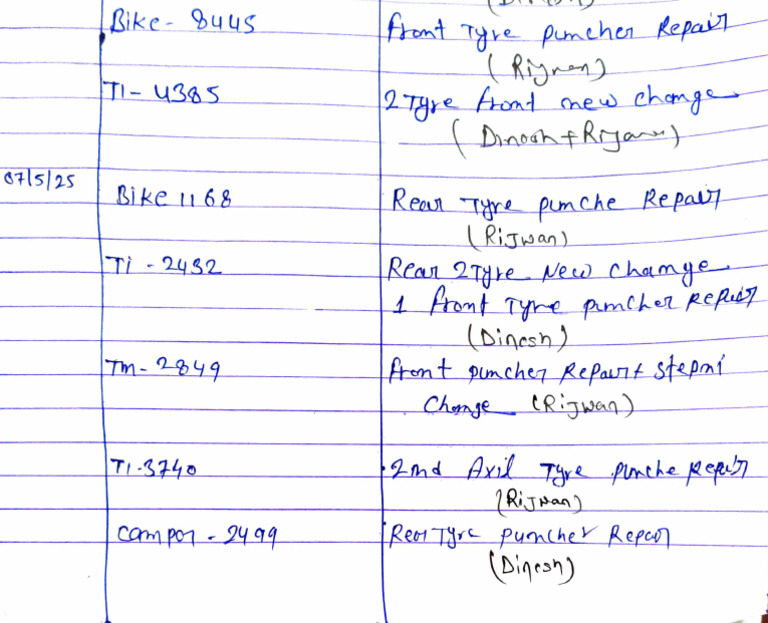 Bike - 8445 Front Tyre puncher Repair
(Rijwan)
TI - 4385 2 Tyre front new change
(Dinesh + Rijwan)
07/5/25 Bike 1168 Rear Tyre punche Repair
(Rijwan)
Ti - 2432 Rear 2 Tyre New Change
1 front Tyre puncher Repair
(Dinesh)
TM - 2849 Front puncher Repair + Stepni
Change (Rijwan)
TI - 3740 2nd Axil Tyre punche Repair
(Rijwan)
Camper - 2499 Rear Tyre puncher Repair
(Dinesh)